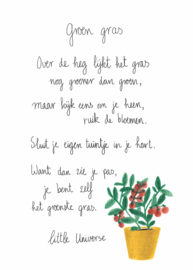 Groen gras
Over de heg lijkt het gras
nog groener dan groen,
maar kijk eens om je heen,
ruik de bloemen.
Sluit je eigen tuintje in je hart.
Want dan zie je pas,
je bent zelf
het groenste gras.
little Universe